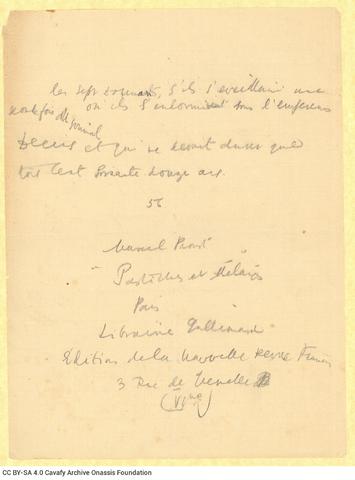 les sept dormants, s'ils s'éveillaient une
où ils s'endormirent sous l'empereur
Decius et qui ne devait durer que
trois cent soixante douze ans.
56
Marcel Proust
"Pastiches et Mélanges
Paris
Librairie Gallimard
Editions de la Nouvelle Revue Française
3 Rue de Grenelle
(VIme)
CC BY-SA 4.0 Cavafy Archive Onassis Foundation